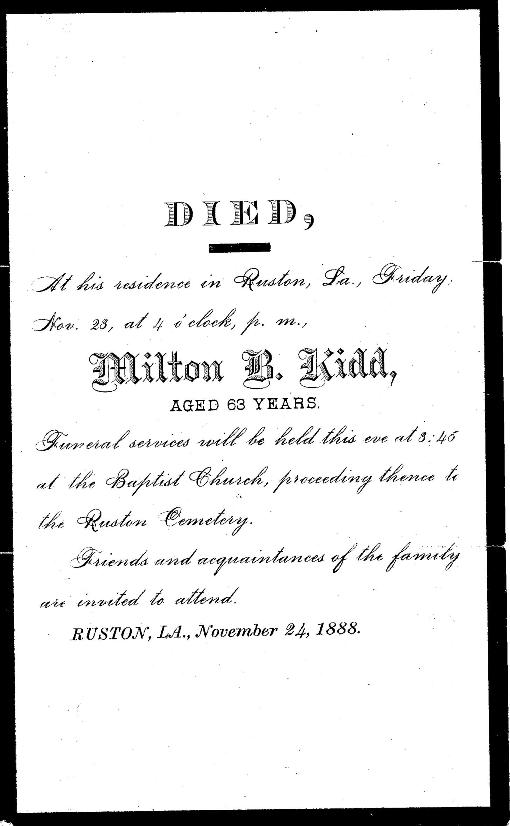 DIED,
At his residence in Ruston, La., Friday,
Nov. 23, at 4 o'clock, p. m.,
Milton B. Kidd,
AGED 63 YEARS.
Funeral services will be held this eve at 3:45
at the Baptist Church, proceeding thence to
the Ruston Cemetery.
Friends and acquaintances of the family
are invited to attend.
RUSTON, LA., November 24, 1888.